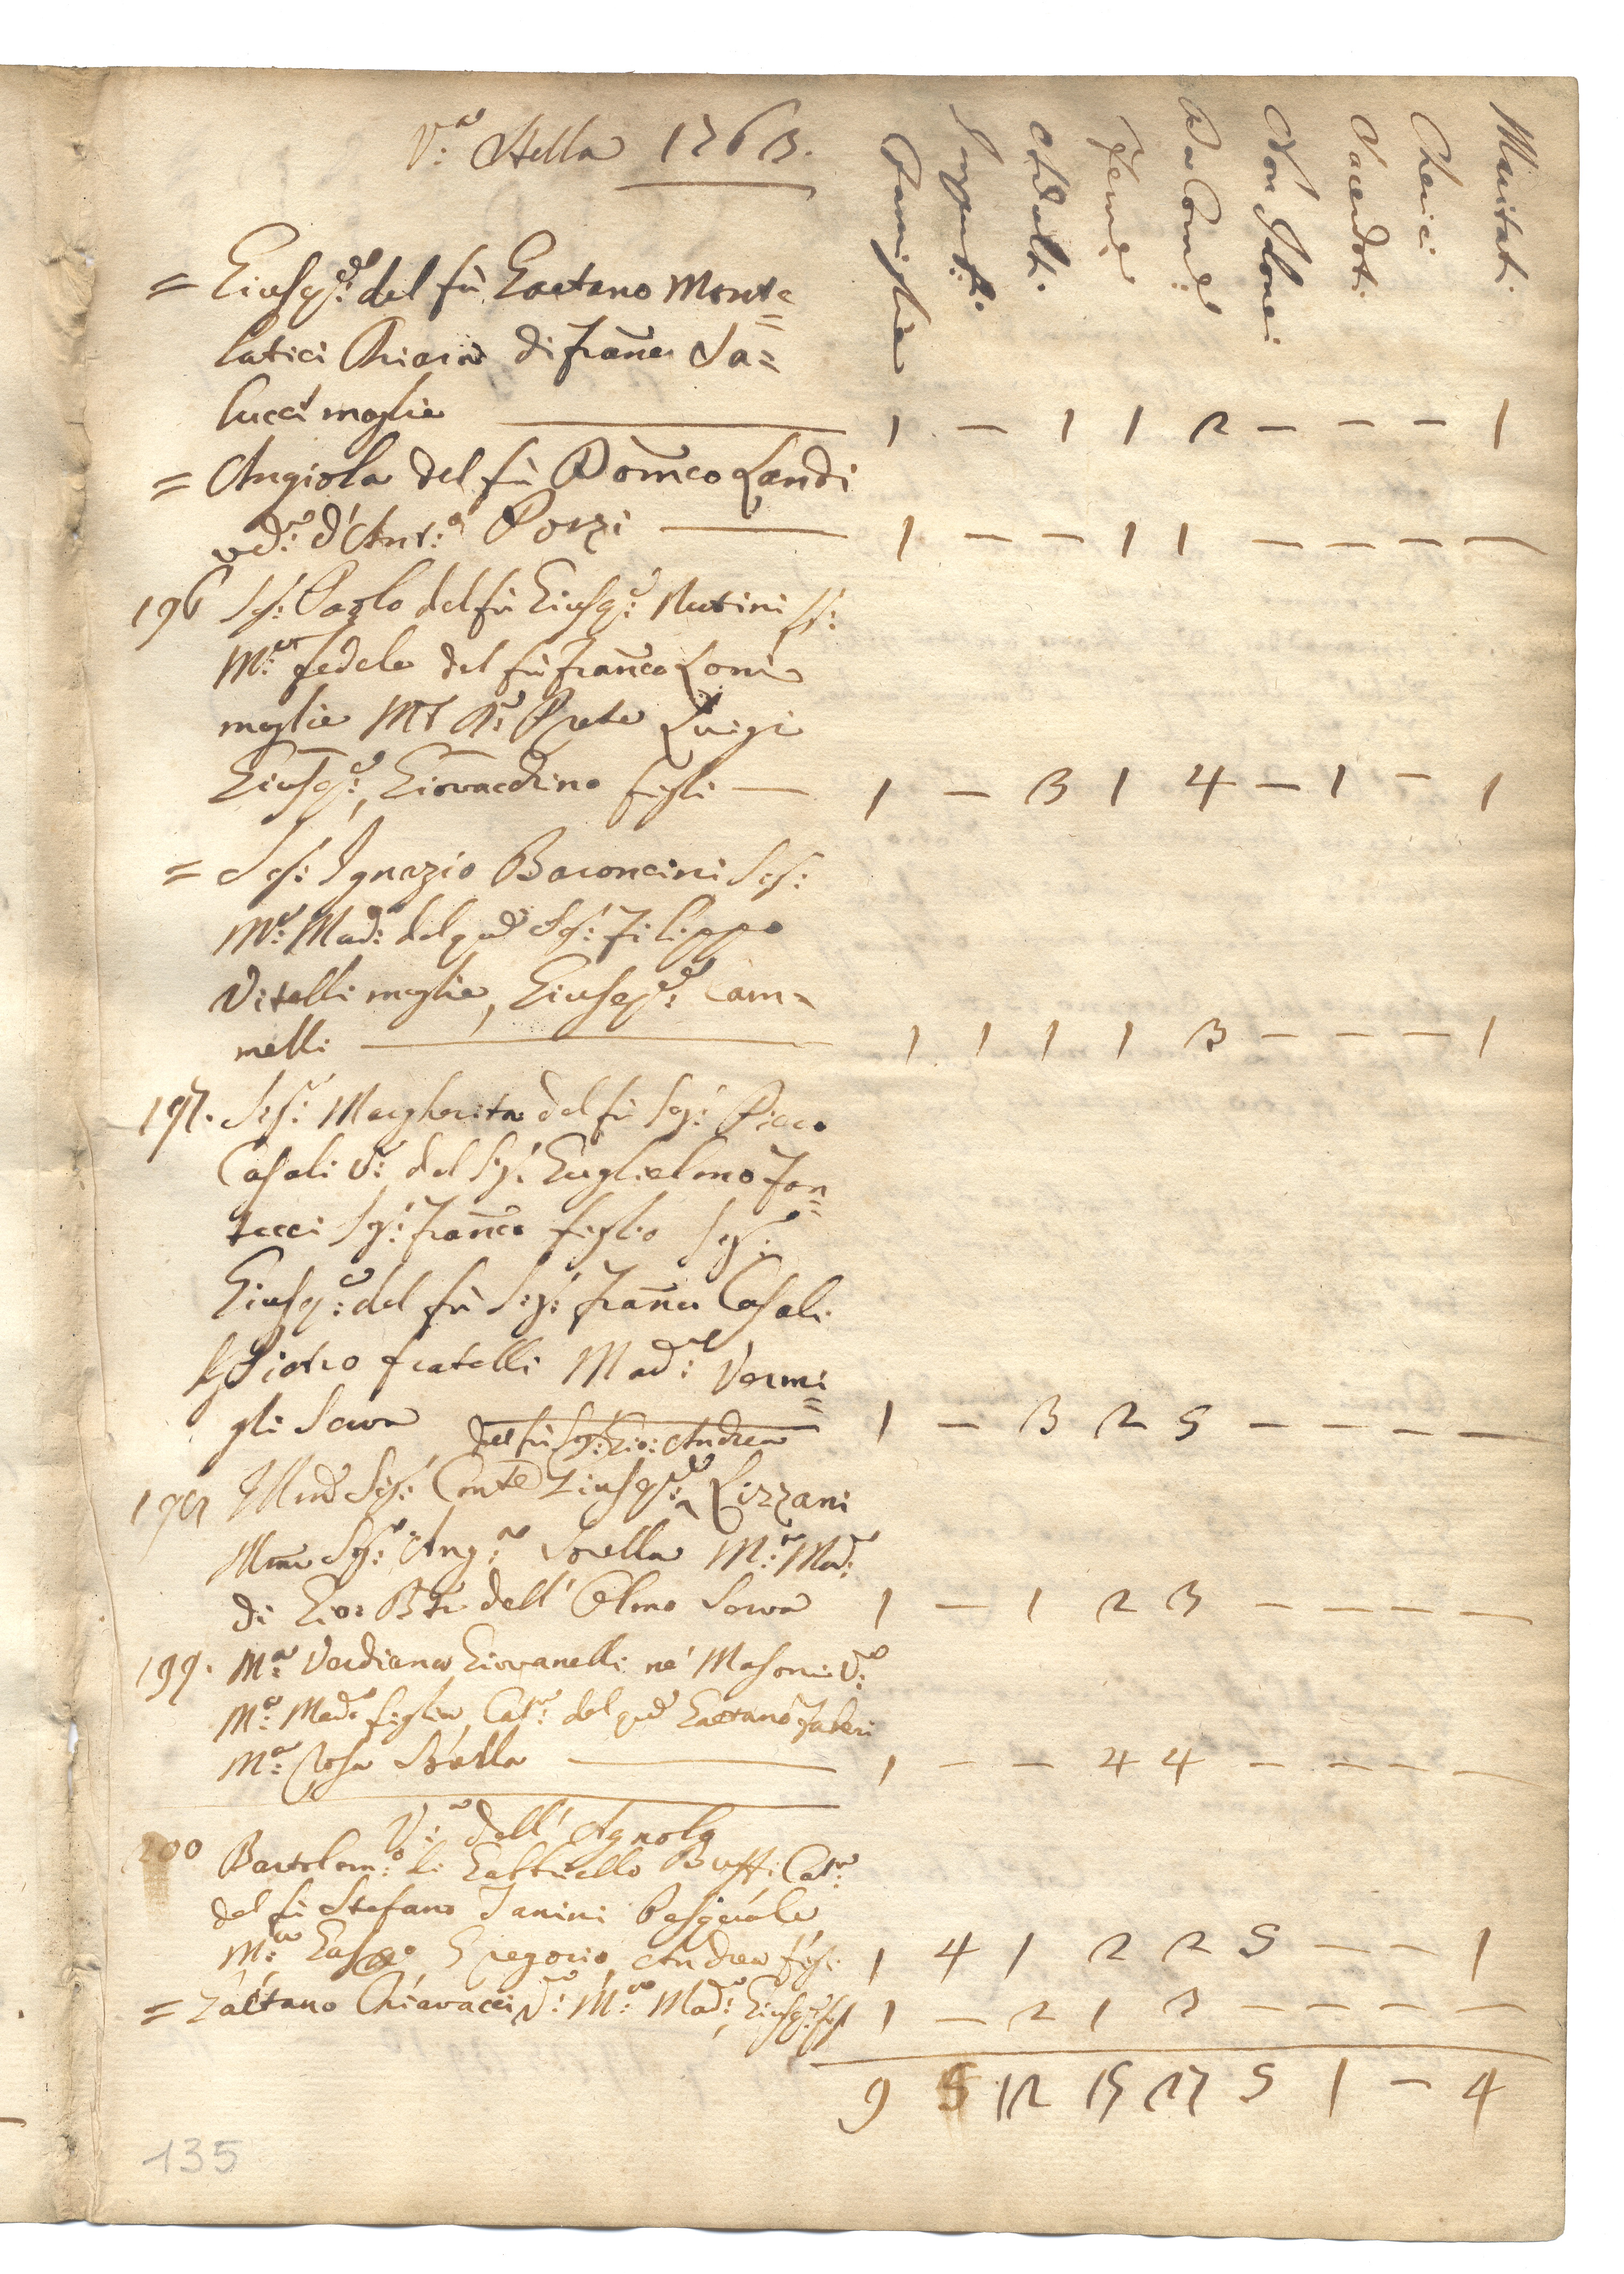 V:a Stella 1763.
Famiglie Impuberi Adulti Feme Da Come Non Idonei Sacerdoti Cherici Maritati
= Giuse:e del fù Gaetano Mont=
latici Chiara di Franco Sa=
lucci moglie 1 – 1 1 2 – – – 1
= Angiola del fù Domco Landi
vda: d'Ant:o Pozzi 1 – – 1 1 – – – –
196 Sig: Paolo del fù Giuse:e Nutini
M:a fedele del fù Franco Loni
moglie Prete Luigi
Giuse:e, Giovacchino figli 1 – 3 1 4 – 1 – 1
= Sig: Ignazio Baroncini Sig:
M:a Mad: del qud Sig: Filippo
Vitelli moglie, Giusepe: Cam=
melli 1 1 1 1 3 – – – 1
197. Sig:a Margherita del fù Sig: Piero
Casali V: del Sig: Guglielmo Fon=
tacci Sig: Franco figlio Sig:
Giuse:e del fù Sig: Franco Casali
Pietro fratelli Mad:a Vermi=
gli Serva 1 – 3 2 5 – – – –
del fù Sig: Gio: Andrea
198 Illmo Sig: Conte Giuse:e Lizzani
Illma Sig:a Ang:a Sorella M:a Mad:a
di Gio: Bta dell' Olmo Serva 1 – 1 2 3 – – – –
199. M:a Verdiana Giovanelli ne' Masoni V:a
M:a Mad:a figlia, Cat:a del qud Gaetano Faleri
M:a Rosa Sorella 1 – – 4 4 – – – –
V:a dell' Agnolo
200 Bartolom:o di Gabbriello Buffi Cat:a
del fù Stefano Janini Pasquale
M:a Gasp:o Gregorio, Andrea figli 1 4 1 2 2 5 – – 1
= Gaetano Chiavacci V:o M:a Mad:a, Giuse:e figli 1 – 2 1 3 – – – –
9 5 12 15 27 5 1 – 4
135